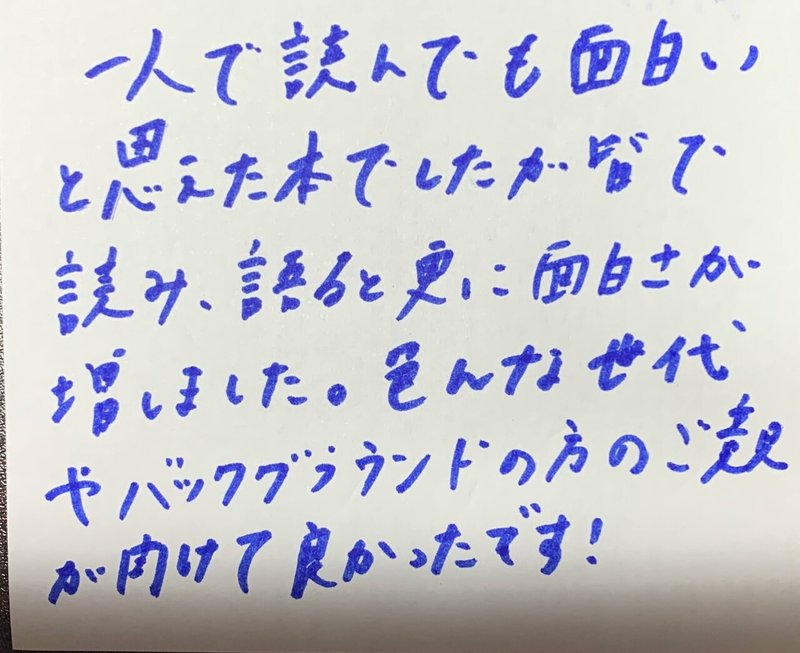 一人で読んでも面白い
と思えた本でしたが皆で
読み、語ると更に面白さが
増しました。色んな世代
やバックグラウンドの方のご意見
が聞けて良かったです!